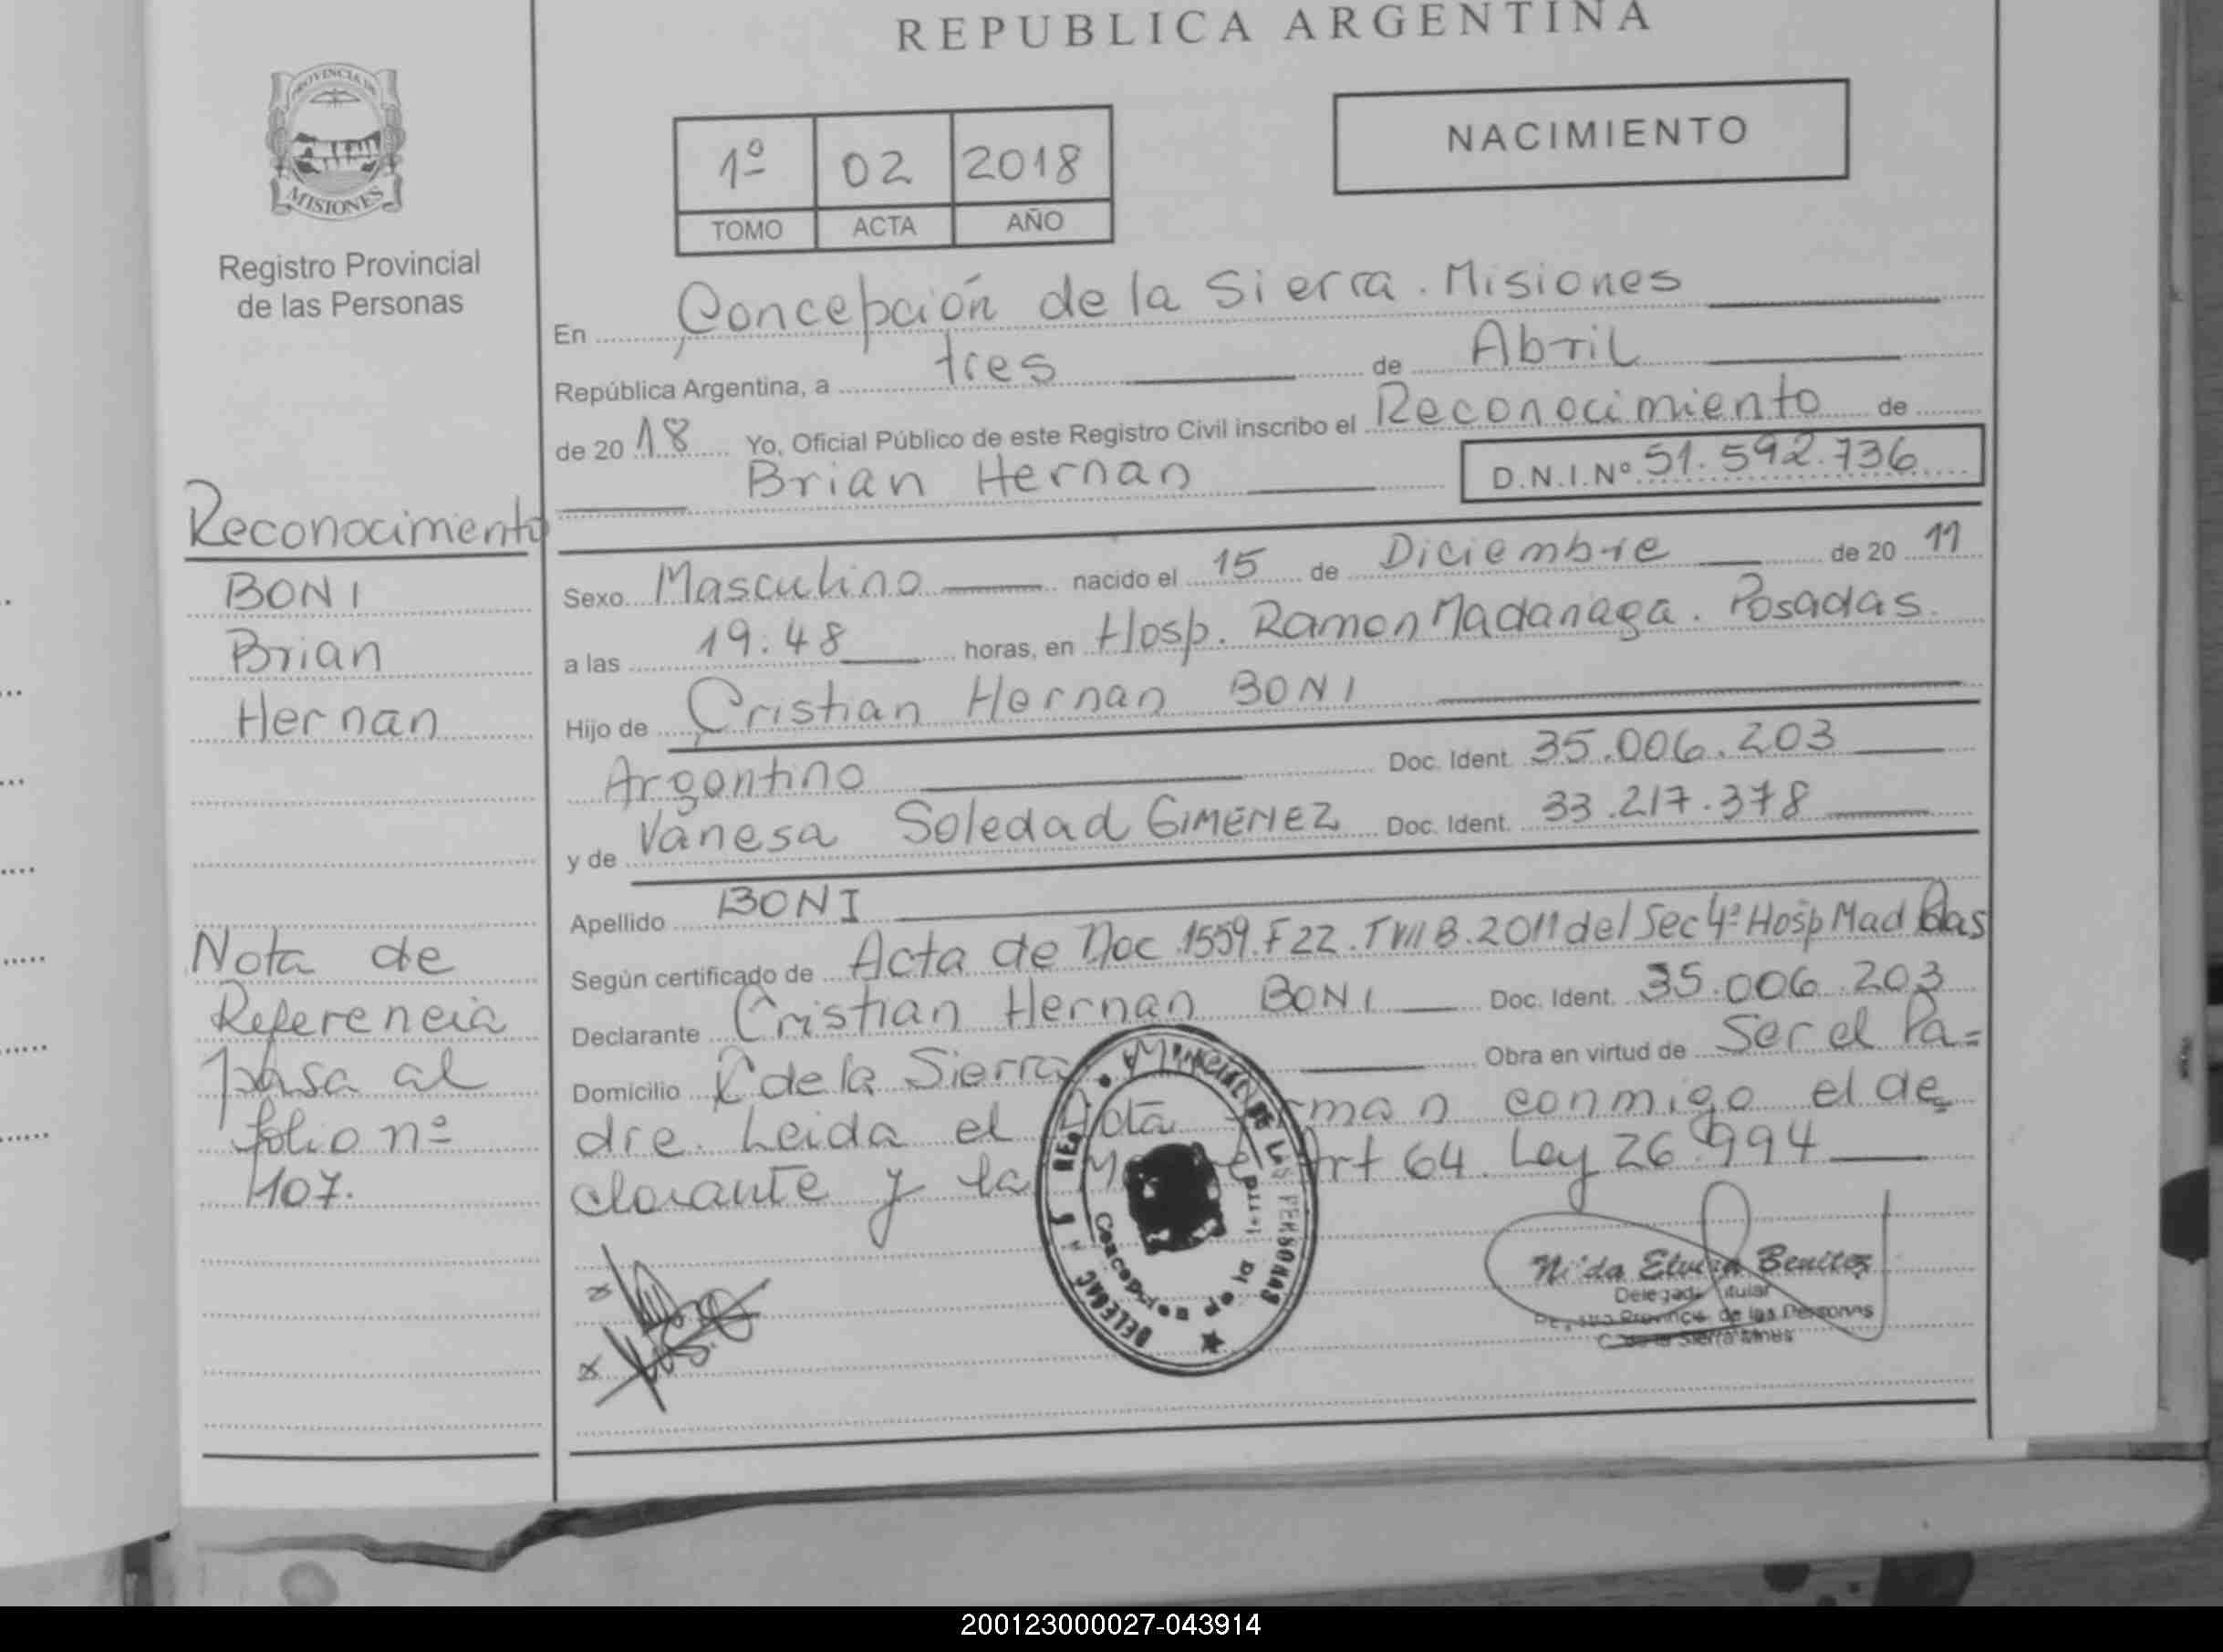 REPUBLICA ARGENTINA
PROVINCIA DE
MISIONES
Registro Provincial
de las Personas
1º 02 2018
TOMO ACTA AÑO
NACIMIENTO
En Concepción de la Sierra. Misiones
República Argentina, a tres de Abril
de 2018 Yo, Oficial Público de este Registro Civil inscribo el Reconocimiento de
Brian Hernan D.N.I.Nº 51.592.736
Sexo Masculino nacido el 15 de Diciembre de 20 11
a las 19:48 horas, en Hosp. Ramon Madariaga. Posadas.
Hijo de Cristian Hernan BONI
Argentino Doc. Ident. 35.006.203
y de Vanesa Soledad GIMENEZ Doc. Ident. 33.217.378
Apellido BONI
Según certificado de Acta de Nac 1559. F 22. T VII B. 2011 del Sec 4ª Hosp Mad Pdas
Declarante Cristian Hernan BONI Doc. Ident. 35.006.203
Domicilio C de la Sierra Obra en virtud de Ser el Pa=
dre. Leida el Acta conmigo el de=
clarante y la Art 64. Ley 26.994
Reconocimento
BONI
Brian
Hernan
Nota de
Referencia
pasa al
folio nº
107.
DE LAS PERSONAS
Nilda Elvira Benitez
Delegada Titular
de las Personas
200123000027-043914